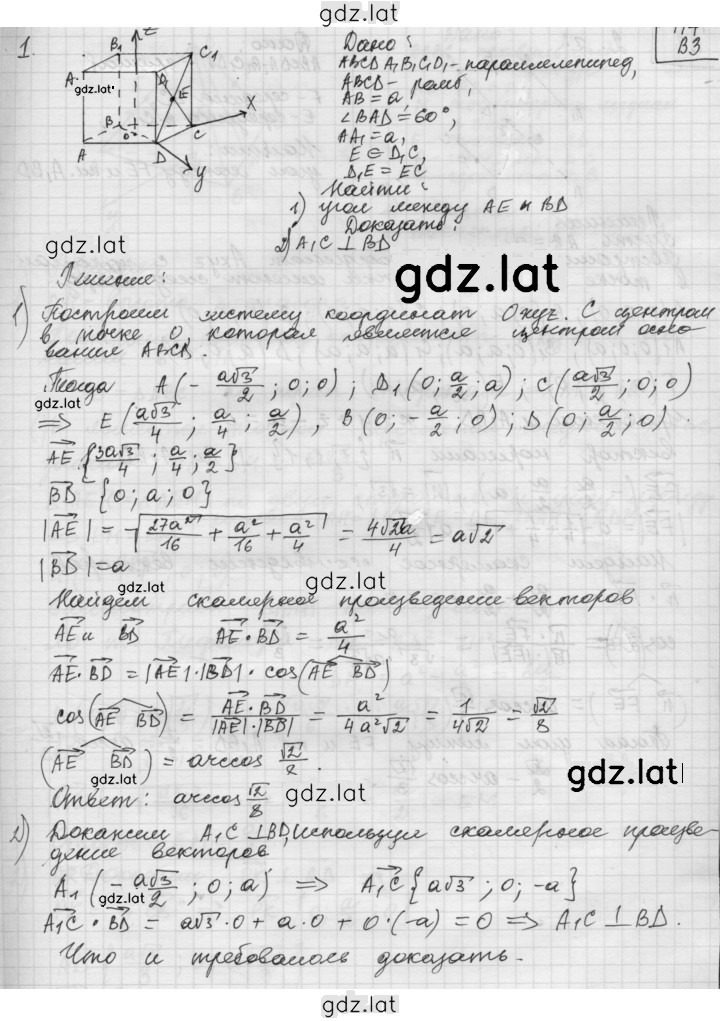 gdz.lat
П4
В3
1.
z
B₁
C₁
A₁
D₁
E
X
B
C
O
A
D
y
gdz.lat
Дано:
ABCD A₁B₁C₁D₁ - параллелепипед,
ABCD - ромб,
AB = a,
∠BAD = 60°,
AA₁ = a,
E ∈ D₁C,
D₁E = EC
Найти:
1) угол между AE и BD
Доказать:
2) A₁C ⊥ BD
gdz.lat
gdz.lat
Решение:
1) Построим систему координат Oxyz. С центром
в точке O которая является центром осно-
вания ABCD.
Тогда A(-a√3/2; 0; 0); D₁(0; a/2; a); C(a√3/2; 0; 0)
gdz.lat
⇒ E(a√3/4; a/4; a/2), B(0; -a/2; 0); D(0; a/2; 0).
AE {3a√3/4; a/4; a/2}
BD {0; a; 0}
|AE| = √(27a²/16 + a²/16 + a²/4) = 4√2a/4 = a√2
|BD| = a
gdz.lat
gdz.lat
Найдем скалярное произведение векторов
AE и BD AE·BD = a²/4
AE·BD = |AE|·|BD|·cos(AE BD)
cos(AE BD) = AE·BD/|AE|·|BD| = a²/4a²√2 = 1/4√2 = √2/8
(AE BD) = arccos √2/8.
gdz.lat
gdz.lat
Ответ: arccos √2/8
gdz.lat
2) Докажем A₁C ⊥ BD, используя скалярное произве-
дение векторов
A₁(-a√3/2; 0; a) ⇒ A₁C {a√3; 0; -a}
gdz.lat
A₁C · BD = a√3·0 + a·0 + 0·(-a) = 0 ⇒ A₁C ⊥ BD.
Что и требовалось доказать.
gdz.lat